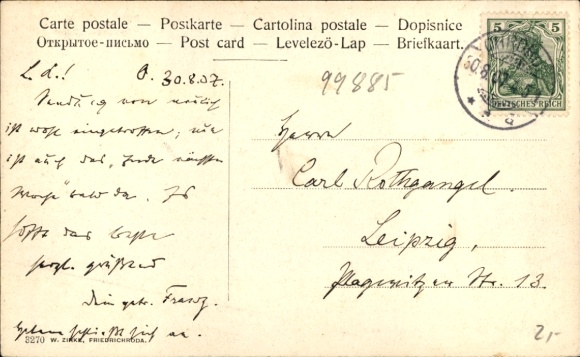 Carte postale — Postkarte — Cartolina postale — Dopisnice
Открытое-письмо — Post card — Levelező-Lap — Briefkaart.
5 5
DEUTSCHES REICH
30.8.07
L. L.! O. 30.8.07.
99885
Sendung von neulich
ist wohl eingetroffen; nun
ist auch das Ende nächster
Woche bald da. Ich
hoffe das beste
herzl. grüßend
Dein getr. Franz.
Herrn
Carl Rothgangel.
Leipzig,
Plagwitzer Str. 13.
3270 W. ZINKE, FRIEDRICHRODA.
2,-